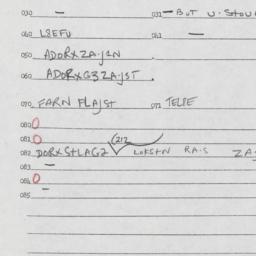 030. — 031 — BUT U. STOU
040 L8EFU 041 —
050. ADORXZA.J1N
060. ADORXG3ZA.JST.
070. FARN FLAJST 071 TELIE
080. 0
081. 0
082. DORXStLAG2 (212 LOKStN RA.S ZA
083. —
084. 0
085. —